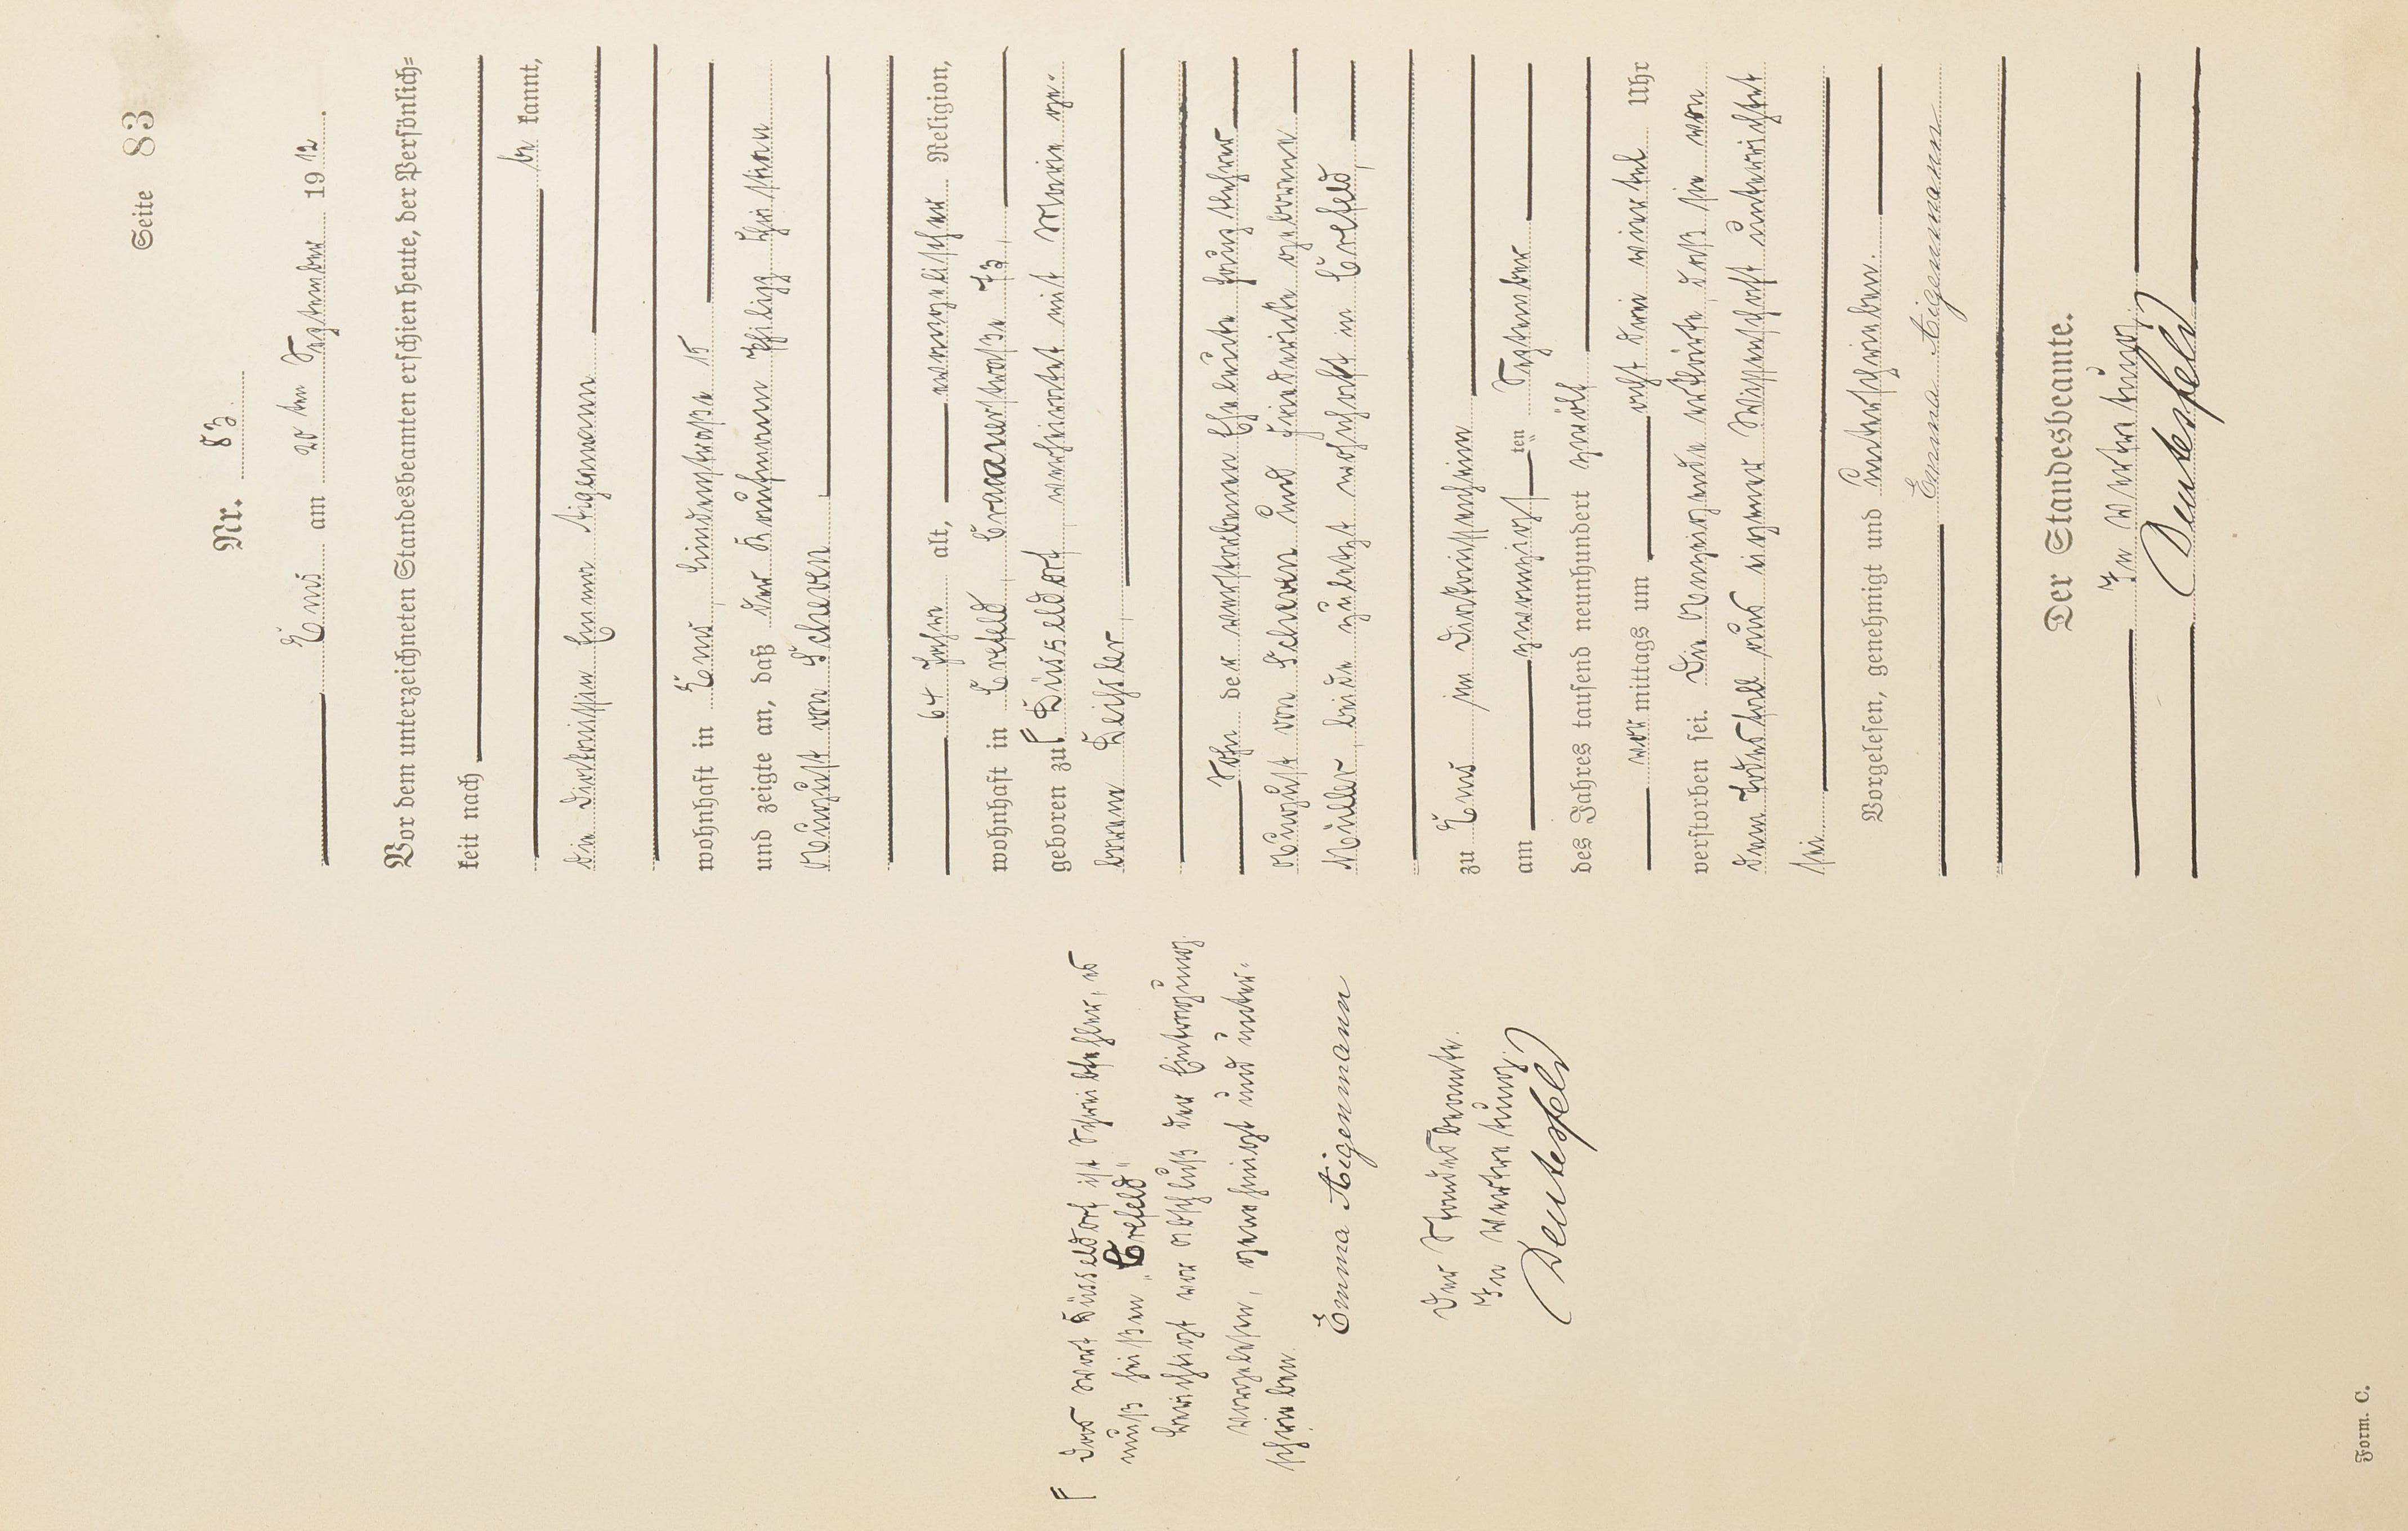 Seite 83
Nr. 83.
Ems am 20 ten September 1912.
Vor dem unterzeichneten Standesbeamten erschien heute, der Persönlich=
keit nach
be kannt,
die Diakonissin Emma Aigenmann
wohnhaft in Ems, Lindenstraße 15
und zeigte an, daß der Kaufmann Philipp Christian
August von Scheven
64 Jahre alt, evangelischer Religion,
wohnhaft in Crefeld, 73,
geboren zu Düsseldorf, verheiratet mit Maria ge-
borene Deißler
Sohn der verstorbenen Eheleute Hauptlehrer
August von Scheven und Friederike geborene
Müller, beide zuletzt wohnhaft in Crefeld,
zu Ems im Diakonissenheim
am zwanzigsten September
des Jahres tausend neunhundert zwölf
vor mittags um acht drei viertel Uhr
verstorben sei. Die Anzeigende erklärte, daß sie von
dem Todesfall aus eigener Wissenschaft unterrichtet
sei.
Vorgelesen, genehmigt und unterschrieben.
Emma Aigenmann
Der Standesbeamte.
In Vertretung
Deutesfeld
Das Wort Düsseldorf ist Schreibfehler, es
muß heißen „Crefeld"
berichtigt vor Abschluß der Eintragung.
vorgelesen, genehmigt und unter-
schrieben.
Emma Aigenmann
Der Standesbeamte.
In Vertretung.
Deutesfeld
Form. C.